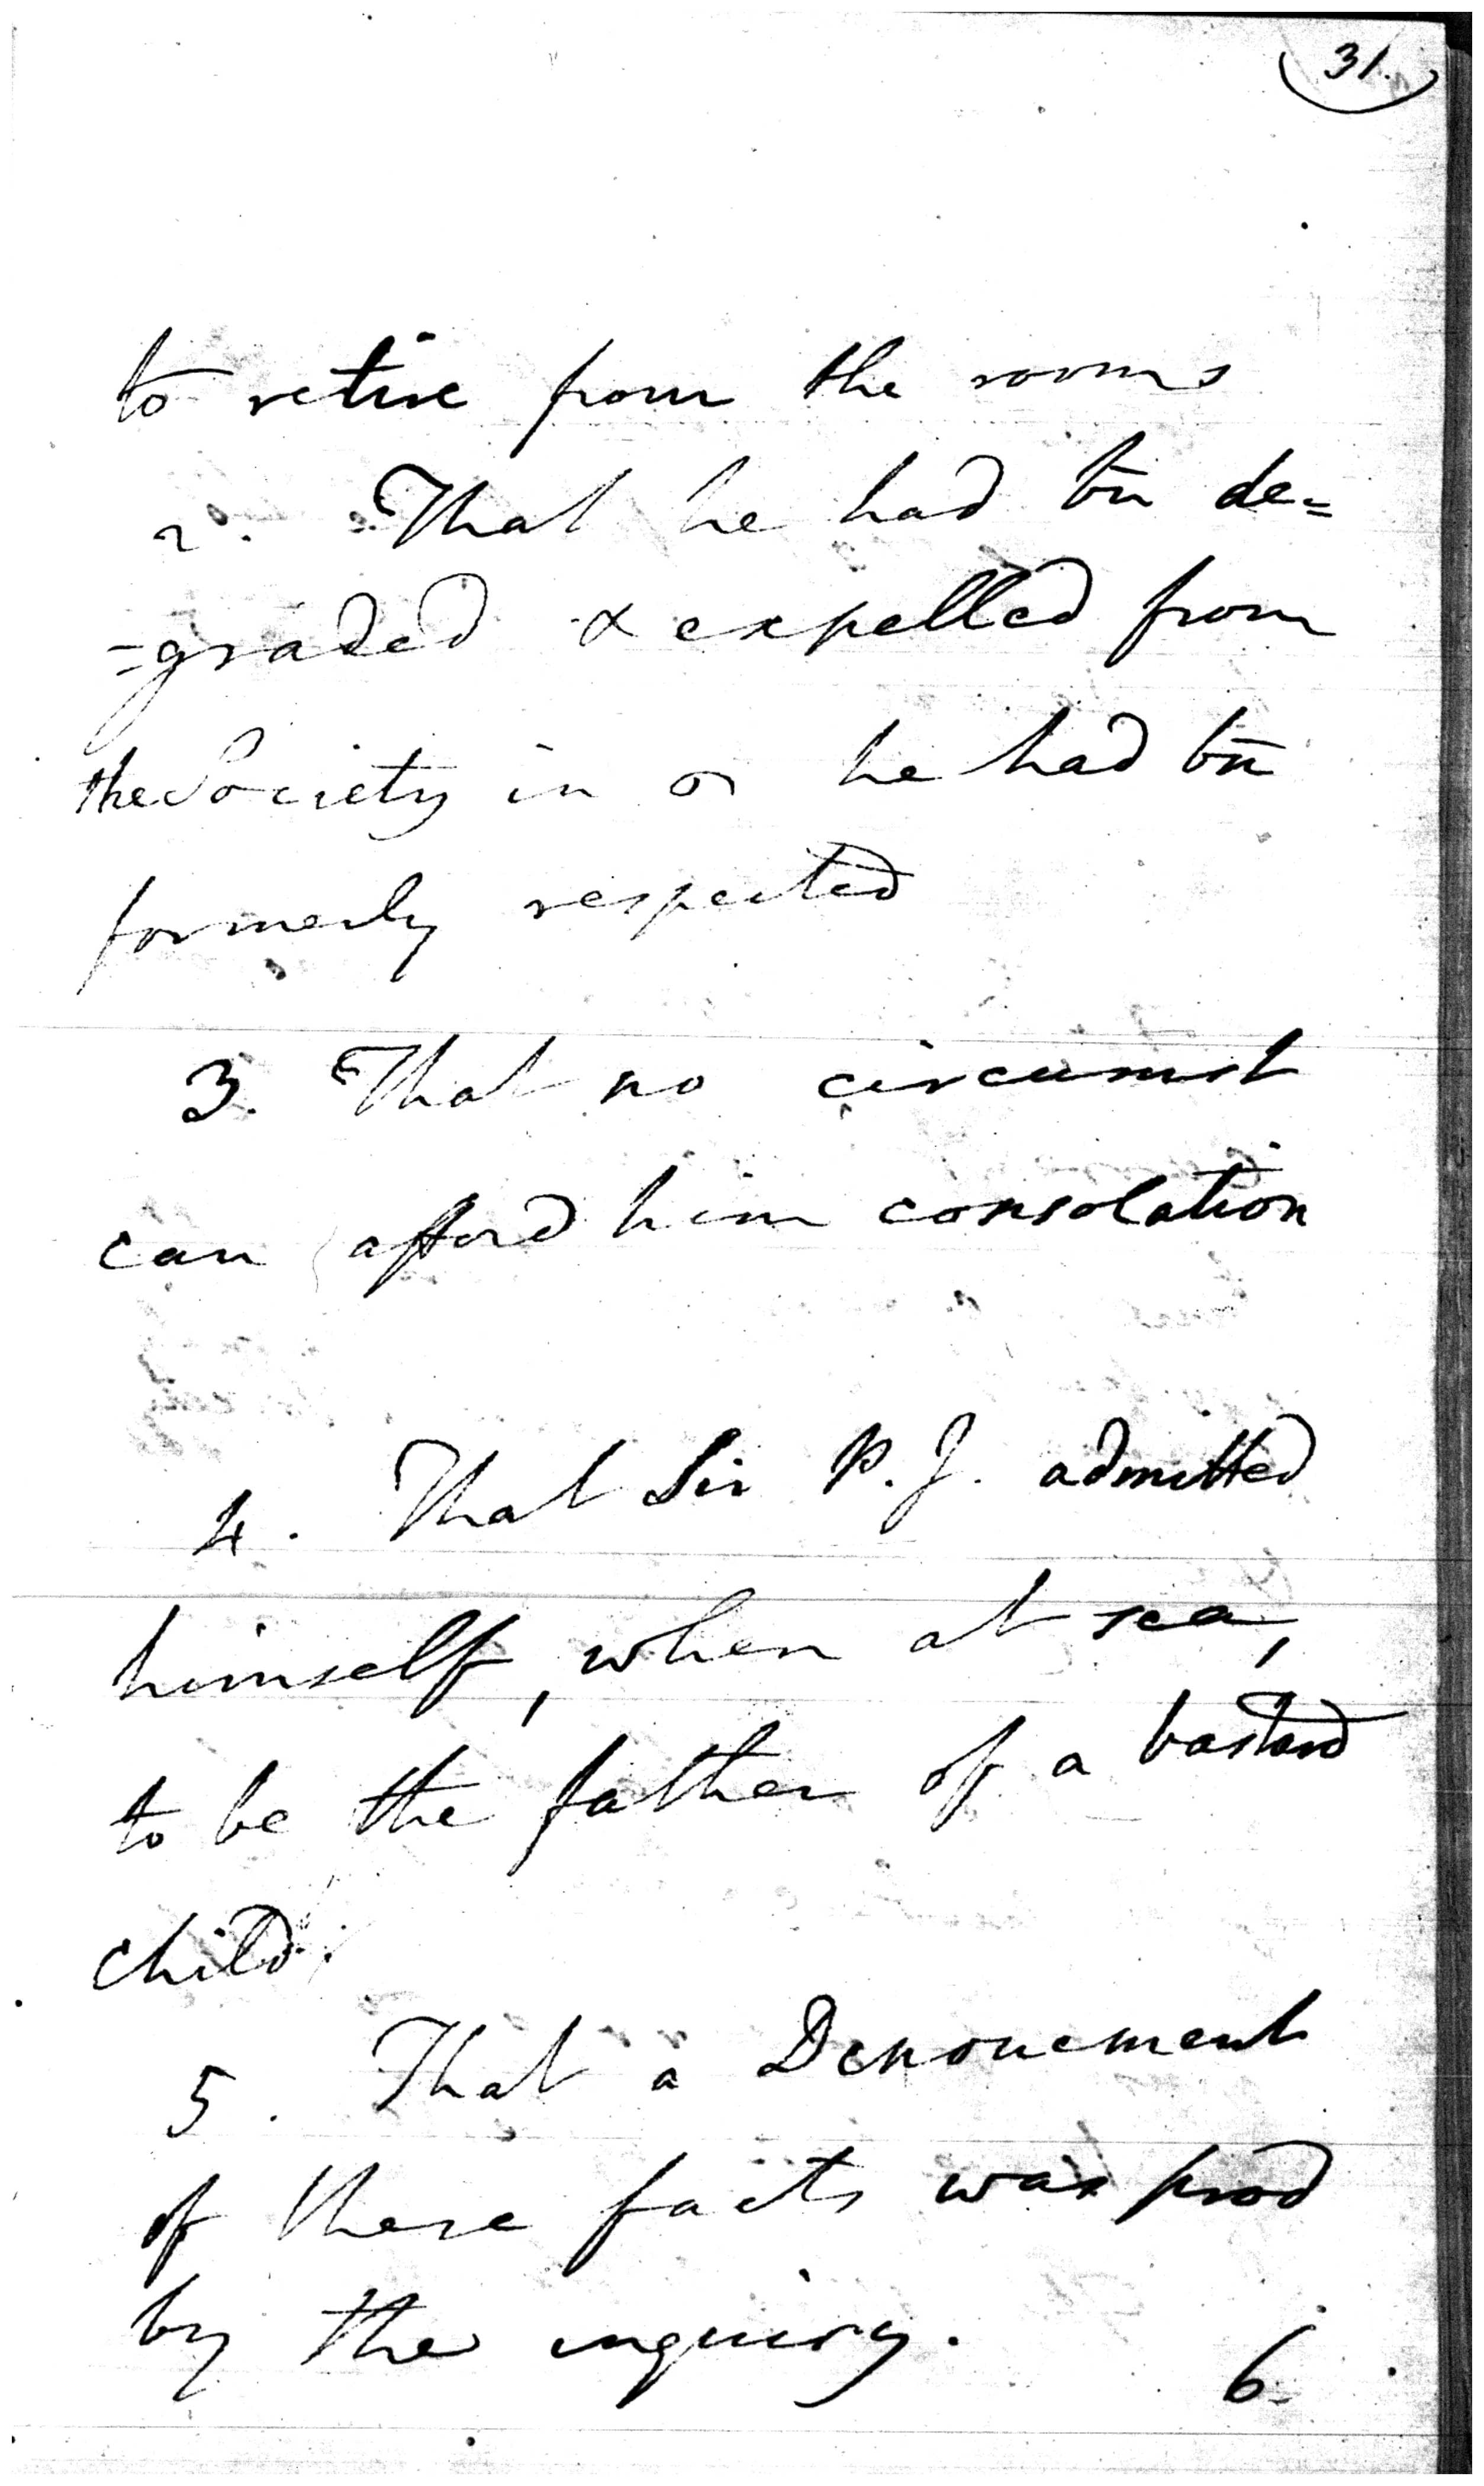 31.
to retire from the rooms
2. That he had bn de=
=graded & expelled from
the Society in he had bn
formerly respected
3. That no circumst
can afford him consolation
4. That Sir P. J. admitted
himself, when at sea,
to be the father of a bastard
child.
5. That a Denouement
of these facts was prod
by the inquiry.
6.